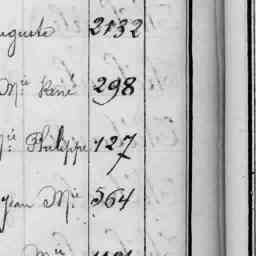 uguste 2132
Mie René 298
ie Philippe 127
Jean Mie 564
Mie